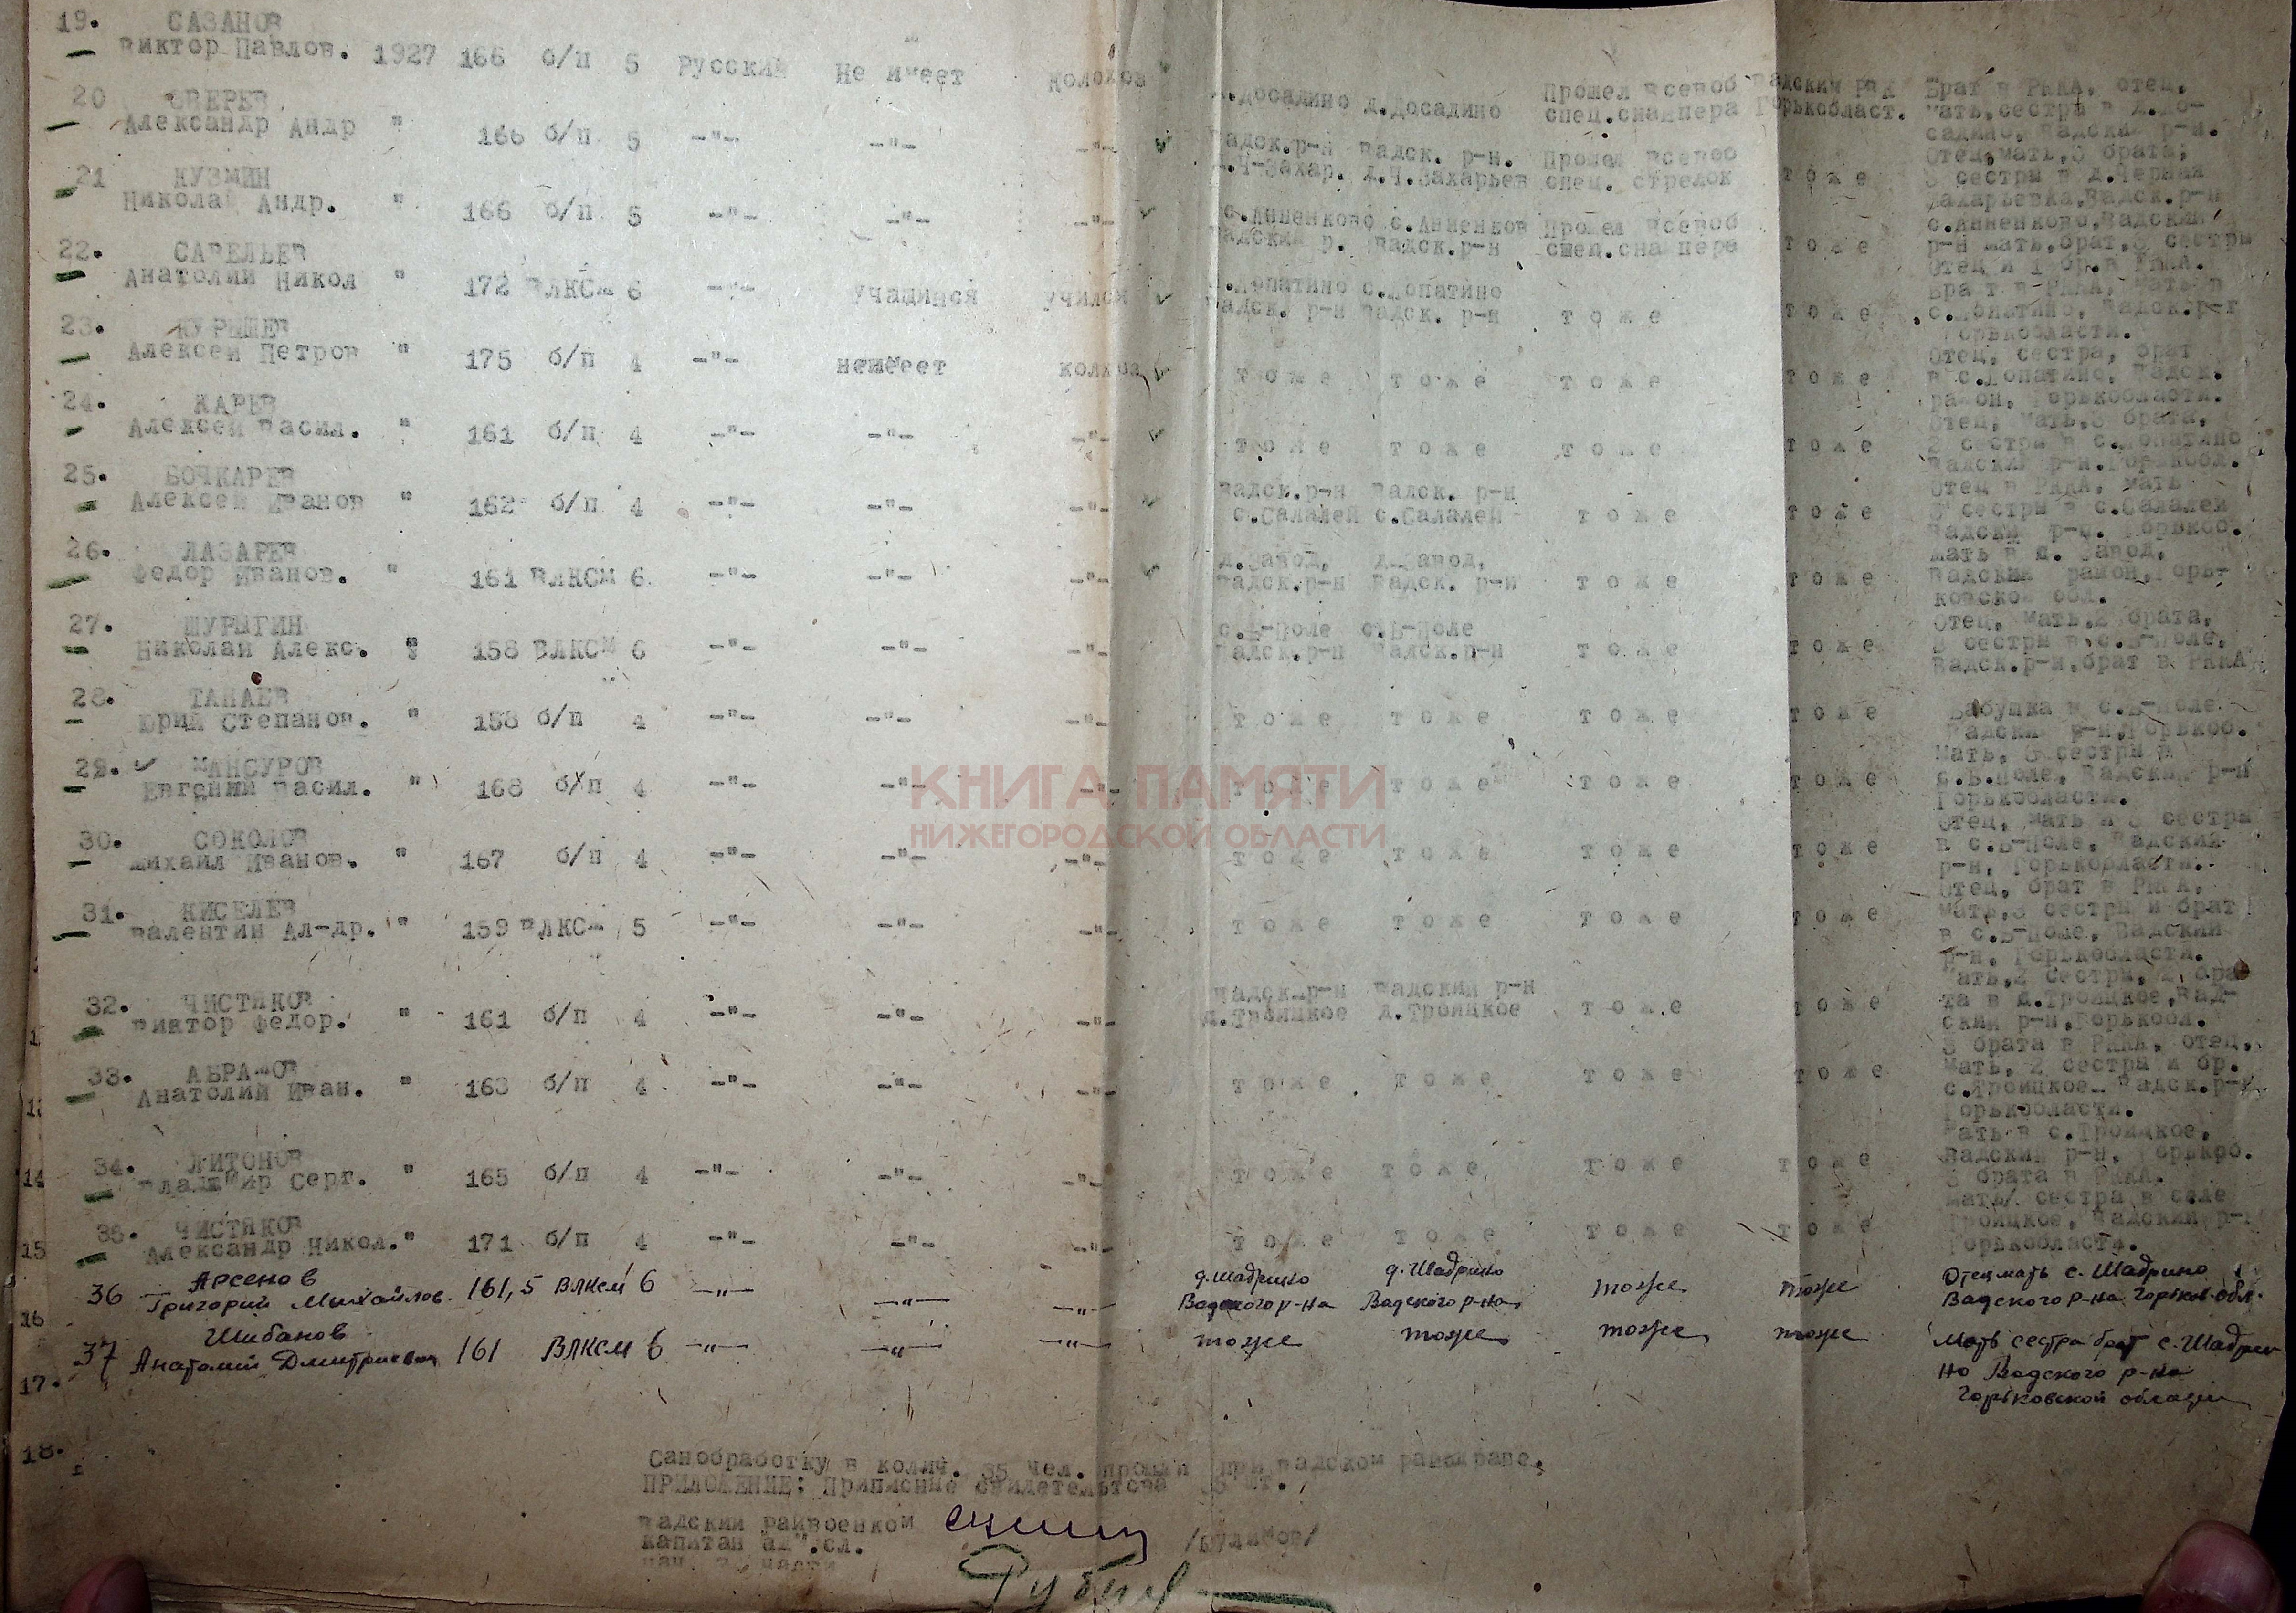 19. САЗАНОВ
Виктор Павлов. 1927 166 б/п 5 Русский Не имеет колохоз д.Досадино д.Досадино Прошел всевоб Вадский р-н Брат в РККА, отец,
спец.снайпера Горькобласт. мать,сестра в д.До-
садино, Вадский р-н.
20 ЗВЕРЕВ
Александр Андр " 166 б/п 5 -"- -"- -"- Вадск.р-н Вадск. р-н. Прошел всевоб Отец,мать,3 брата,
Ч-Захар. д.Ч.Захарьев спец. стрелок тоже 3 сестры в д.Черная
Захарьевка,Вадск.р-н
21 КУЗМИН
Николай Андр. " 166 б/п 5 -"- -"- -"- с.Анненково с.Анненков Прошел всевоб с.Анненково,Вадский
Вадский р. Вадск.р-н спец.снайпера тоже р-н мать,брат,3 сестры
Отец и 1 бр.в РККА.
22. САВЕЛЬЕВ
Анатолий Никол " 172 ВЛКСМ 6 -"- учащийся учился с.Лопатино с.Лопатино Брат в РККА, мать в
Вадск. р-н Вадск. р-н тоже тоже с.Лопатино, Вадск.р-г
Горькобласти.
23. КУРЫШЕВ
Алексей Петров " 175 б/п 4 -"- неимеет колхоз тоже тоже тоже тоже Отец, сестра, брат
в с.Лопатино, Вадск.
район, Горькобласти.
24. КАРЕВ
Алексей Васил. " 161 б/п 4 -"- -"- -"- тоже тоже тоже тоже Отец, мать,3 брата,
2 сестры в с.Лопатино
Вадский р-н.Горькобл.
25. БОЧКАРЕВ
Алексей Иванов " 162 б/п 4 -"- -"- -"- Вадск.р-н Вадск. р-н Отец в РККА, мать
с.Салалей с.Салалей тоже тоже 3 сестры в с.Салалей
Вадский р-н. Горькоб.
26. ЛАЗАРЕВ
Федор Иванов. " 161 ВЛКСМ 6 -"- -"- -"- д.Завод, д.Завод, мать в д. Завод,
Вадск.р-н Вадск. р-н тоже тоже Вадский район,Горь-
ковской обл.
27. ШУРЫГИН
Николай Алекс. " 158 ВЛКСМ 6 -"- -"- -"- с.В-Поле с.В-Поле Отец, мать,2 брата,
Вадск.р-н Вадск.р-н тоже тоже 3 сестры в с.В-Поле,
Вадск.р-н,брат в РККА
28. ТАНАЕВ
Юрий Степанов. " 153 б/п 4 -"- -"- -"- тоже тоже тоже тоже Бабушка в с.В-Поле
Вадский р-н,Горькоб.
29. МАНСУРОВ
Евгений Васил. " 168 б/п 4 -"- -"- -"- тоже тоже тоже тоже Мать, 3 сестры в
с.В.Поле, Вадский р-н
Горькобласти.
КНИГА ПАМЯТИ
НИЖЕГОРОДСКОЙ ОБЛАСТИ
30. СОКОЛОВ
Михаил Иванов. " 167 б/п 4 -"- -"- -"- тоже тоже тоже тоже Отец, мать и 3 сестры
в с.В-Поле, Вадский
р-н, Горькобласти.
31. КИСЕЛЕВ
Валентин Ал-др. " 159 ВЛКСМ 5 -"- -"- -"- тоже тоже тоже тоже Отец, брат в РККА,
мать,3 сестры и брат
в с.В-Поле, Вадский
р-н, Горькобласти.
32. ЧИСТЯКОВ
Виктор Федор. " 161 б/п 4 -"- -"- -"- Вадск.р-н Вадский р-н Мать,2 сестры,2 бра
д.Троицкое д.Троицкое тоже тоже та в д.Троицкое,Вад-
ский р-н,Горькобл.
33. АБРАМОВ
Анатолий Иван. " 163 б/п 4 -"- -"- -"- тоже тоже тоже тоже 3 брата в РККА, отец,
мать, 2 сестра и бр.
с.Троицкое Вадск.р-н
Горькобласти.
34. ЛИТОНОВ
Владимир Серг. " 165 б/п 4 -"- -"- -"- тоже тоже тоже тоже Мать в с.Троицкое,
Вадский р-н, Горькоб.
3 брата в РККА.
35. ЧИСТЯКОВ
Александр Никол." 171 б/п 4 -"- -"- -"- тоже тоже тоже тоже мать/ сестра в селе
Троицкое, Вадский р-н
Горькобласти.
36 Арсенов
Григорий Михайлов. 161,5 ВЛКСМ 6 -"- -"- -"- д.Шадрино д.Шадрино тоже тоже Отец мать с. Шадрино
Вадского р-на Вадского р-на Вадского р-на Горьков. обл.
37 Шибанов
Анатолий Дмитриевич 161 ВЛКСМ 6 -"- -"- -"- тоже тоже тоже тоже Мать сестра брат с. Шадри
но Вадского р-на
Горьковской области
14
15
16
17.
18.
Санобработку в колич. 35 чел. прошли при Вадском райздраве.
ПРИЛОЖЕНИЕ: Приписные свидетельства 35 шт.
Вадский райвоенком
капитан адм.сл.
нач. 2 части